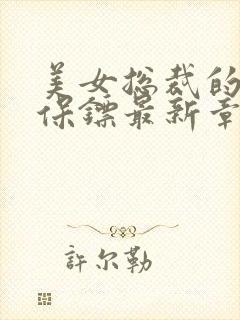 美女总裁的
保镖最新章
許尔勒